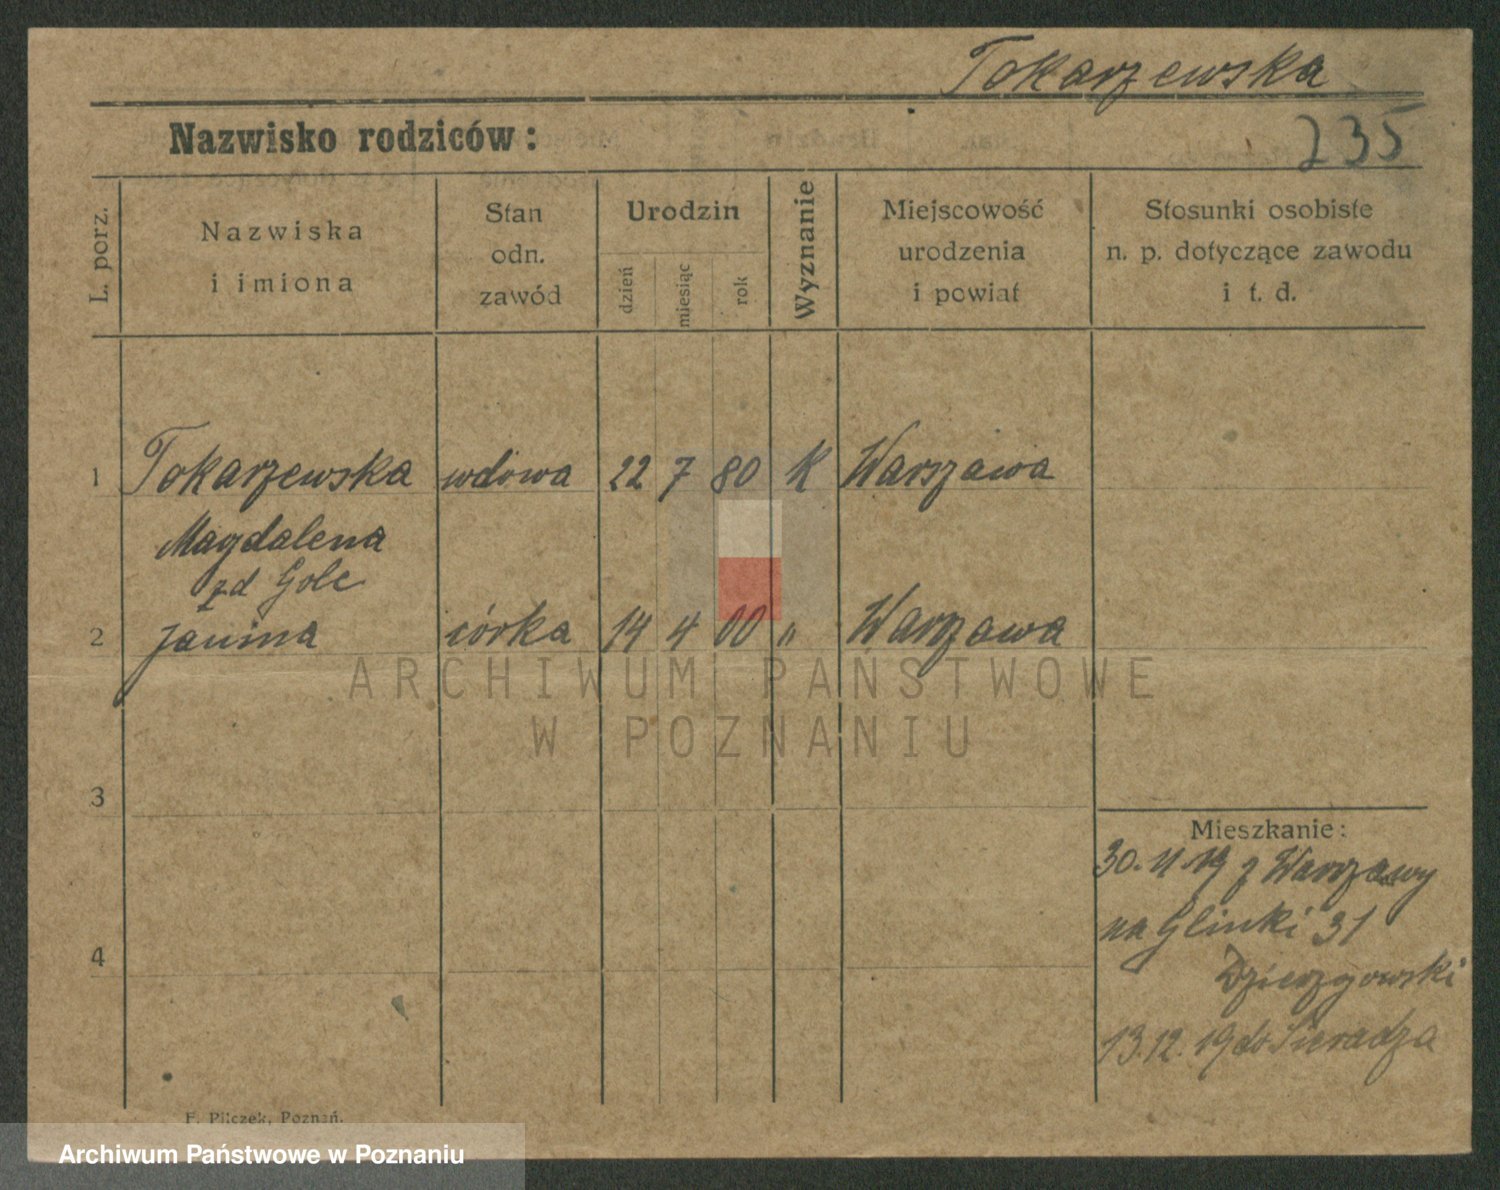 Tokarzewska
235
Nazwisko rodziców:
L. porz.
Nazwiska
i imiona
Stan
odn.
zawód
Urodzin
dzień
miesiąc
rok
Wyznanie
Miejscowość
urodzenia
i powiat
Stosunki osobiste
n. p. dotyczące zawodu
i t. d.
1 Tokarzewska wdowa 22 7 80 K Warszawa
Magdalena
zd Gole
2 Janina córka 14 4 00 " Warszawa
ARCHIWUM PAŃSTWOWE
W POZNANIU
3
4
Mieszkanie:
30.11.19 z Warszawy
na Glinki 31
Dzierzgowski
13.12.19 do Sieradza
F. Pilczek, Poznań.
Archiwum Państwowe w Poznaniu